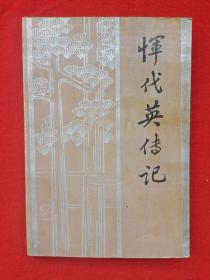 恽代英传记